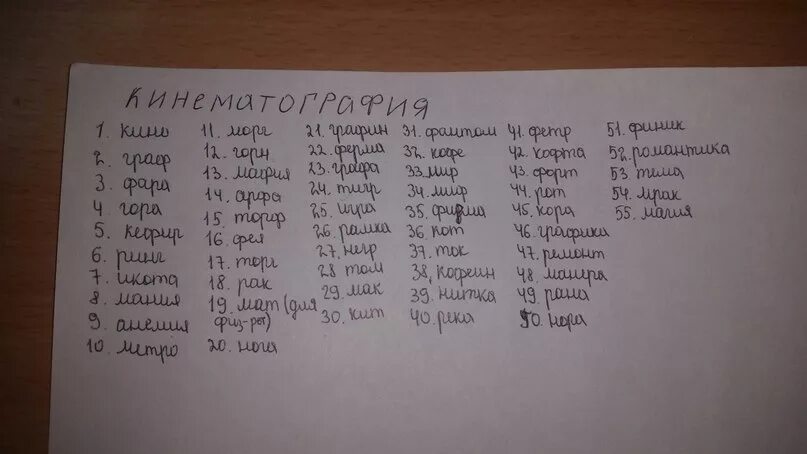 КИНЕМАТОГРАФИЯ
1. кино
2. граф
3. фара
4. гора
5. кефир
6. ринг
7. икота
8. мания
9. анемия
10. метро
11. морг
12. горн
13. мафия
14. арфа
15. торф
16. фея
17. торг
18. рак
19. мат (для
физ-ры)
20. нога
21. графин
22. ферма
23. графа
24. тигр
25. игра
26. рамка
27. негр
28 том
29. мак
30. кит
31. фантом
32. кофе
33. мир
34. миф
35. фирма
36. кот
37. ток
38. кофеин
39. нитка
40. река
41. фетр
42. кофта
43. форт
44. рот
45. кора
46. графика
47. ремонт
48. манера
49. рана
50. нора
51. финик
52. романтика
53. тема
54. мрак
55. магия